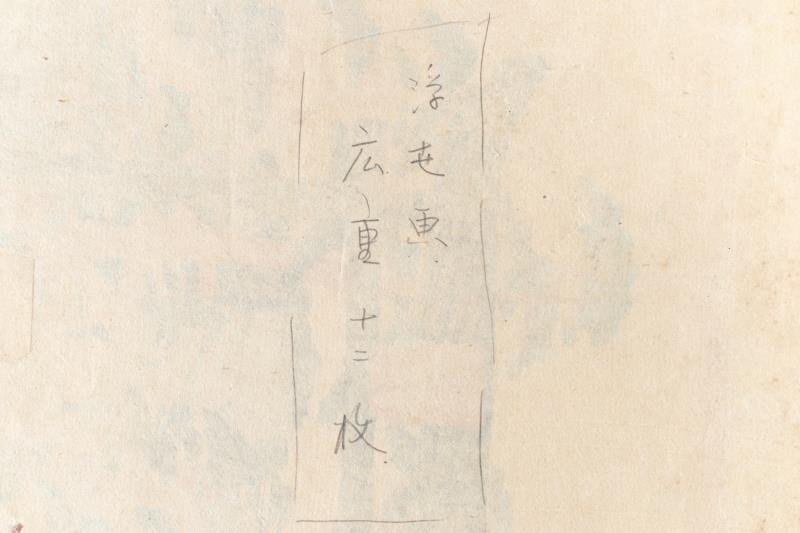 浮世画
広重十二枚